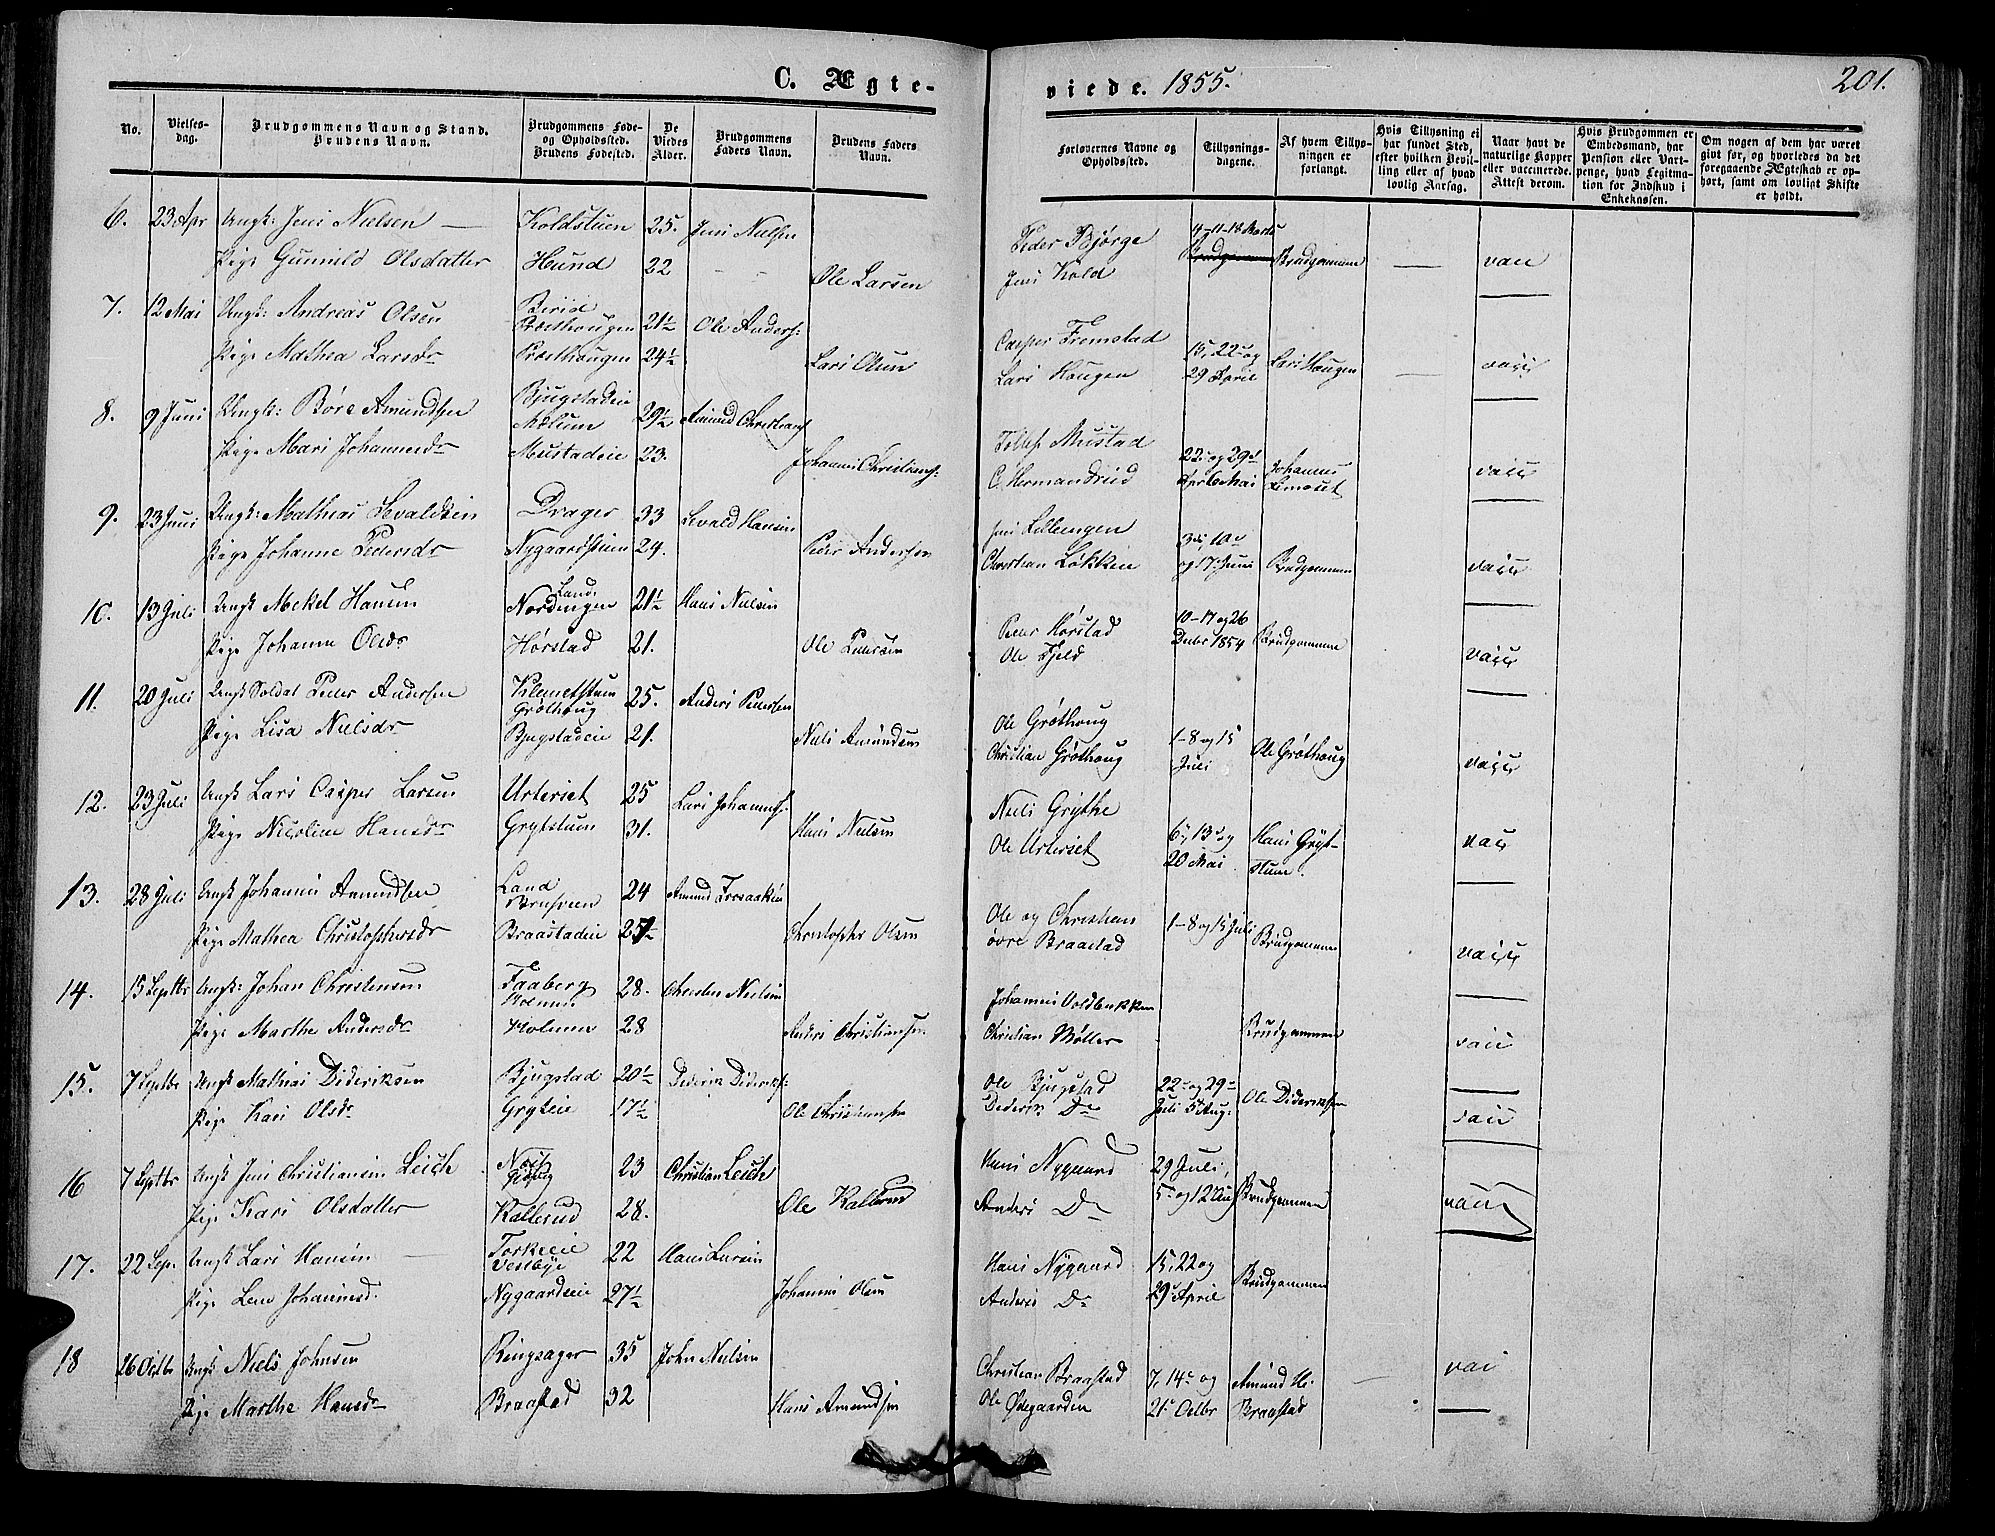 C. Ægte-
viede. 1855.
201.
No.
Vielses-
dag.
Brudgommens Navn og Stand.
Brudens Navn.
Brudgommens Føde-
og Opholdssted.
Brudens Fødested.
De
Viedes
Alder.
Brudgommens
Faders Navn.
Brudens Faders
Navn.
Forlovernes Navne og
Opholdssted.
Tillysnings-
dagene.
Af hvem Tillys-
ningen er
forlangt.
Hvis Tillysning ei
har fundet Sted,
efter hvilken Bevil-
ling eller af hvad
lovlig Aarsag.
Naar havt de
naturlige Kopper
eller vaccinerede.
Attest derom.
Hvis Brudgommen er
Embedsmand, har
Pension eller Vart-
penge, hvad Legitima-
tion for Indskud i
Enkekassen.
Om nogen af dem har været
gift før, og hvorledes da det
foregaaende Ægteskab er op-
hørt, samt om lovligt Skifte
er holdt.
6. 23 Apr Ungk: Jens Nielsen Koldstuen 25. Jens Nielsen
Pige Gunnild Olsdatter Hund 22 Ole Larsen
Peder Bjørge 4-11-18 Marts
Jens Kold Brudgommen vacc
7. 12 Mai Ungk: Andreas Olsen Birid Præsthougen 21½ Ole Anders:
Pige Mathea Larsdr Præsthougen 24½ Lars Olsen
Casper Fremstad 15, 22 og
Lars Hougen 29 April Lars Hougen vacc
8. 9 Juni Ungk: Børe Amundsen Bjugstadeie Mælum 29½ Amund Christians
Pige Mari Johannesdr Mustadeie 23. Johannes Christians:
Tollef Mustad 22 og 29
C. Hermandrud Apr 6 Mai Johannes vacc
9. 23 Juni Ungk: Mathias Sevaldsen Drager 33 Sevald Hansen
Pige Johanne Pedersdr Nygaardstuen 24. Peder Andersen
Jens Lilleengen 3die, 10de
Christian Løkken og 17 Juni Brudgommen vacc
10. 13 Juli Ungk Mekel Hansen Land. Nordingen 21½ Hans Nielsen
Pige Johanne Olsdr Hørstad 21. Ole Pedersen
Peder Hørstad 10-17 og 26
Ole Fjeld Debr 1854 Brudgommen vacc
11. 20 Juli Ungk Soldat Peder Andersen Klemetstuen Grøthoug 25. Anders Pedersen
Pige Lisa Nielsdr Bjugstadeie 21. Niels Amundsen
Ole Grøthoug 1-8 og 15
Christian Grøthoug Juli Ole Grøthoug vacc
12. 23 Juli Ungk Lars Casper Larsen Urteriet 25 Lars Johanness:
Pige Nicoline Hansdr Grytstuen 31. Hans Nielsen
Niels Grythe 6, 13 og Hans Gryt-
Ole Urteriet 20 Mai stuen. vacc
13. 28 Juli Ungk Johannes Amundsen Land 24 Amund
Pige Mathea Christophersdr Braastadeie 25½ Christopher Olsen
Ole og Christian 1-8 og 15 Juli
øvre Braastad Brudgommen vacc
14. 15 Septbr Ungk: Johan Christensen Faaberg 28. Christen Nielsen
Pige Marthe Andersdr Holmen 28 Anders Christiansen
Johannes Voldbakken
Christian Møller Brudgommen vacc
15. 7 Septbr Ungk Mathias Dideriksen Bjugstad 20½ Dederik Dideriks:
Pige Kari Olsdr Gryteie 17½ Ole Christiansen
Ole Bjugstad 22 og 29
Dederik Do Juli 5 Aug: Ole Dideriksen vacc
16 7 Septbr Ungk Jens Christiansen Leich 23 Christian Leich
Pige Kari Olsdatter Kallerud 28. Ole Kallerud
Hans Nygaard 29 Juli,
Anders Do 5 og 12 Aug Brudgommen vacc
17. 22 Sep. Ungk Lars Hansen Torkeeie Vestbye 22 Hans Larsen
Pige Lene Johannesd. Nygaardseie 27½ Johannes Olsen
Hans Nygaard 15, 22 og
Anders Do 29 April Brudgommen
18 26 Octbr Ungk Niels Johnsen Ringsager 35 John Nielsen
Pige Marthe Hansdr Braastad 32 Hans Amundsen
Christian Braastad 7, 14 og Amund H. vac
Ole Ødegaarden 21 Octbr Braastad